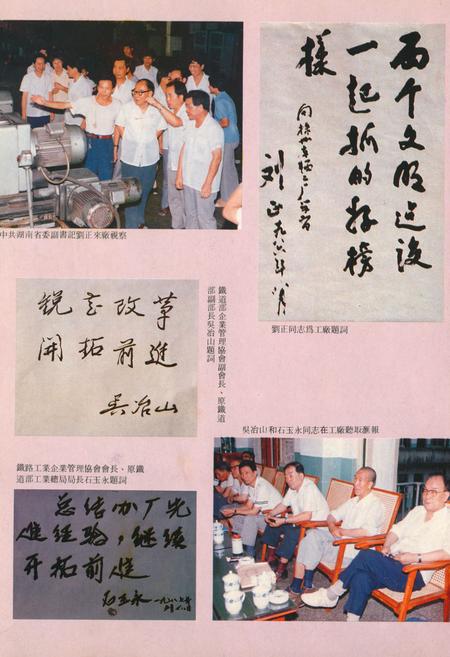 中共湖南省委副書記劉正來廠視察
两个文明建设
一起抓的好榜
样
刘正 一九八六年八月
劉正同志爲工廠題詞
锐意改革
開拓前進
吴冶山
鐵道部企業管理協會副會長、原鐵道
部副部長吳冶山題詞
鐵路工業企業管理協會會長、原鐵
道部工業總局局長石玉永題詞
总结加厂先
進经验，继续
开拓前進
石玉永
吳冶山和石玉永同志在工廠聽取滙報